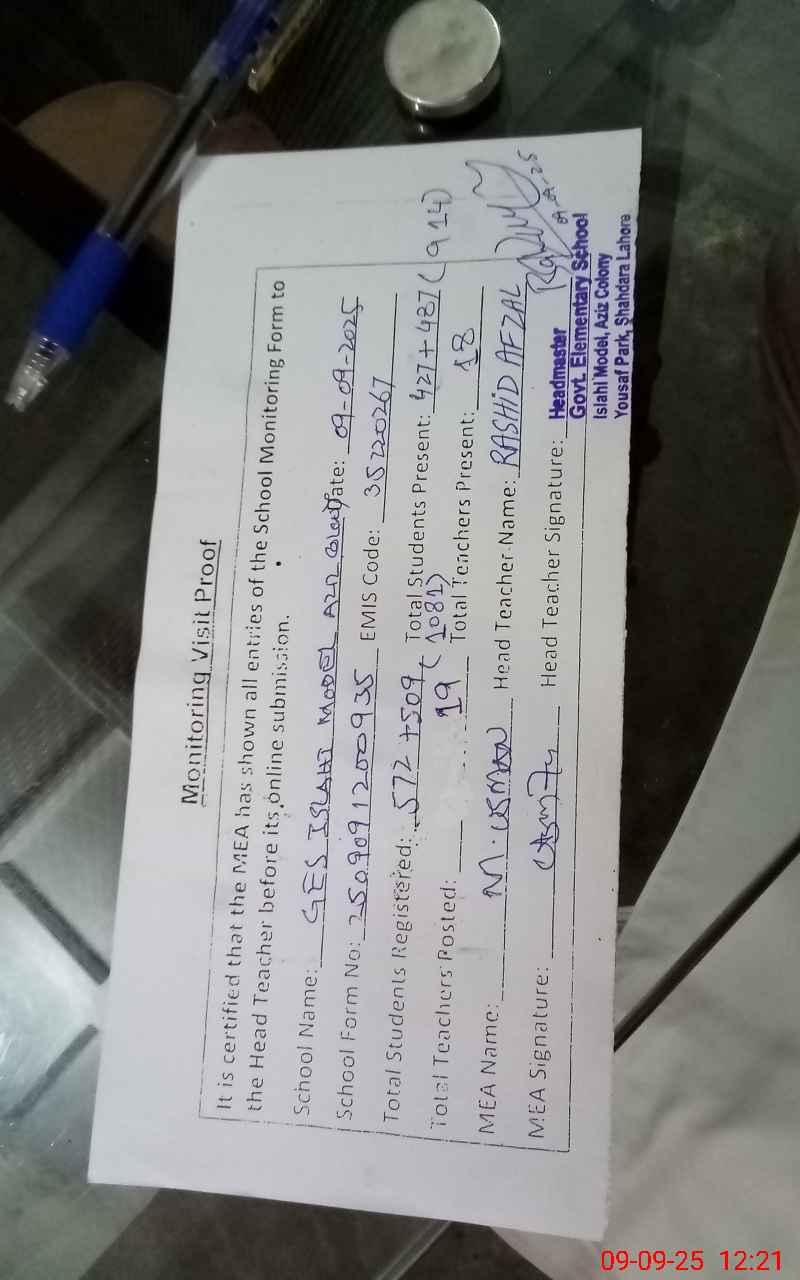 Monitoring Visit Proof
It is certified that the MEA has shown all entries of the School Monitoring Form to
the Head Teacher before its online submission.
School Name: GES ISLAHI MODEL AZIZ Colony Date: 09-09-2025
School Form No: 2509091200935 EMIS Code: 35220267
Total Students Registered: 572+509 (1081) Total Students Present: 427+487 (914)
Total Teachers Posted: 19 Total Teachers Present: 18
MEA Name: M. USMAN Head Teacher Name: RASHID AFZAL
MEA Signature: Head Teacher Signature:
09-09-25
Headmaster
Govt. Elementary School
Islahi Model, Aziz Colony
Yousaf Park, Shahdara Lahore
09-09-25 12:21